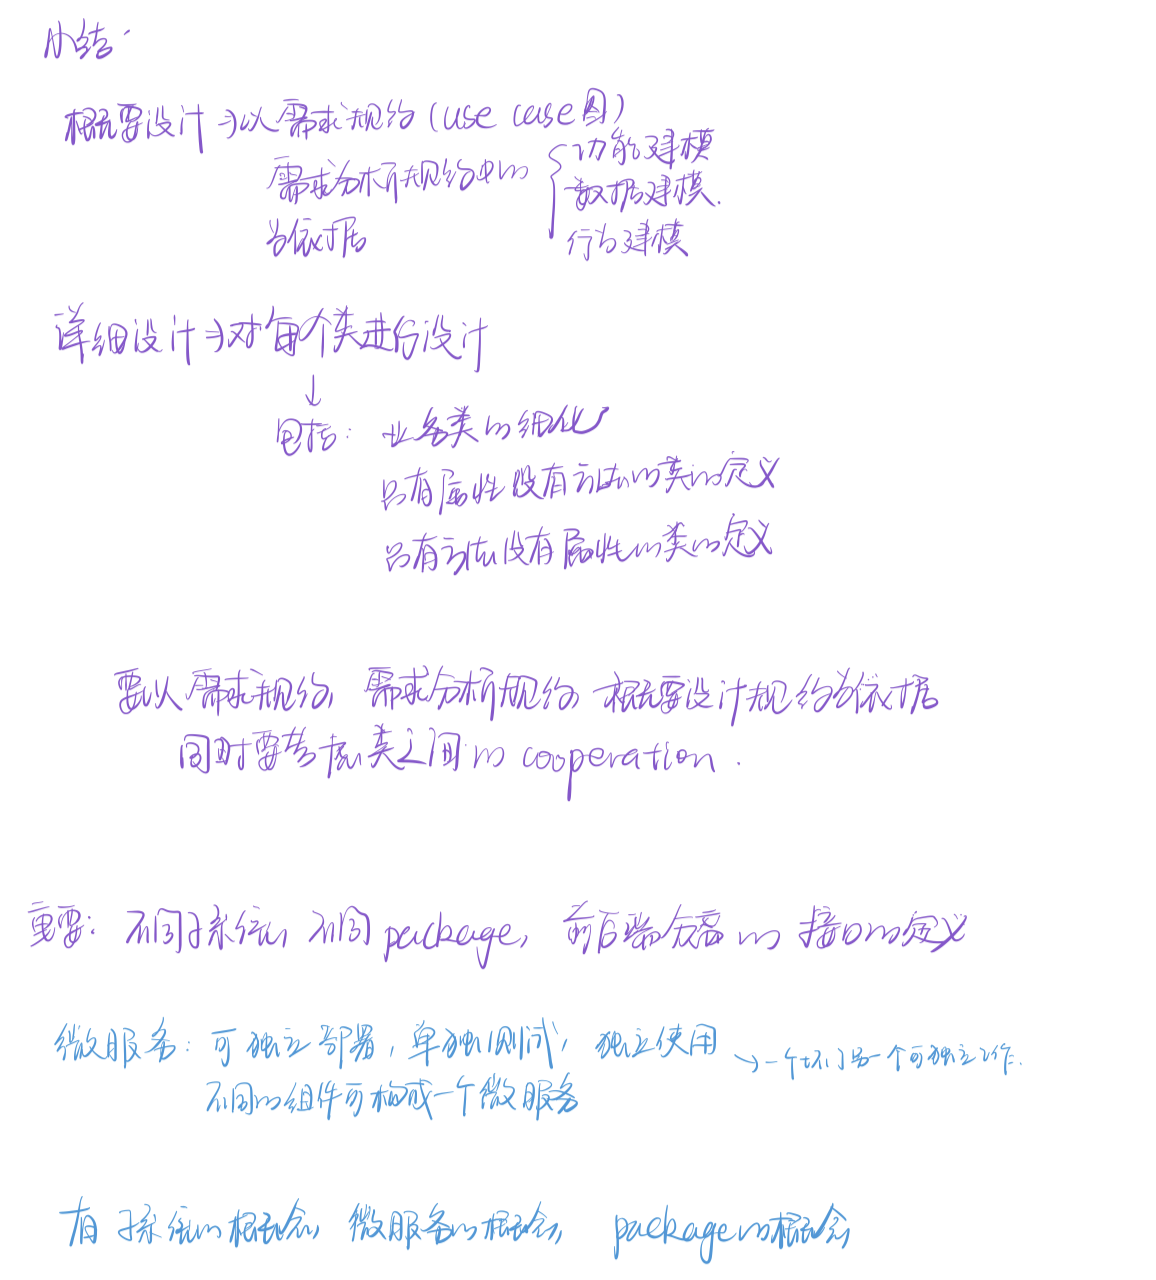 小结.
概要设计→以需求规约(use case图)
需求分析规约中的{功能建模
数据建模.
当依据
行为建模
详细设计→对每个类进行设计
↓
包括: 业务类的细化
只有属性没有方法的类的定义
只有方法没有属性的类的定义
要以需求规约, 需求分析规约, 概要设计规约当依据
同时要考虑类之间的cooperation.
重要: 不同子系统, 不同package, 前后端分离的接口的定义
微服务: 可独立部署, 单独测试, 独立使用 → 一个坏了另一个可独立工作.
不同的组件可构成一个微服务
有子系统的概念, 微服务的概念, package的概念